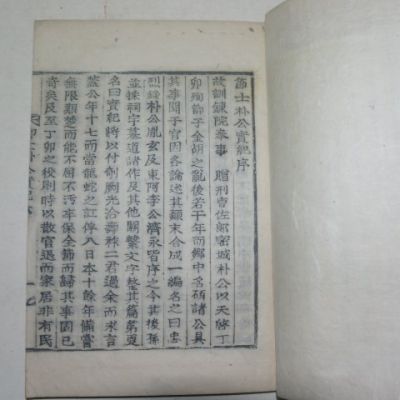 節士朴公實紀序
故訓鍊院奉事 贈刑曹佐郎密城朴公以天啓丁
卯殉節于金胡之亂後若干年而鄕中名碩諸公具
其事聞于官因各論述其顚末合成一編名之曰忠
烈錄朴公胤玄及東阿李公濟永皆序之今其後孫
並採祠宇墓道諸作及其他關繫文字釐其篇第更
名曰實紀將以付剞劂光洽壽祚二君過余而求言
蓋公年十七而當龍蛇之訌俘入日本十餘年備嘗
無限艱楚而能不屈不汚卒保全節而歸其事固已
奇矣及至丁卯之役則時以散官退而家居非有民